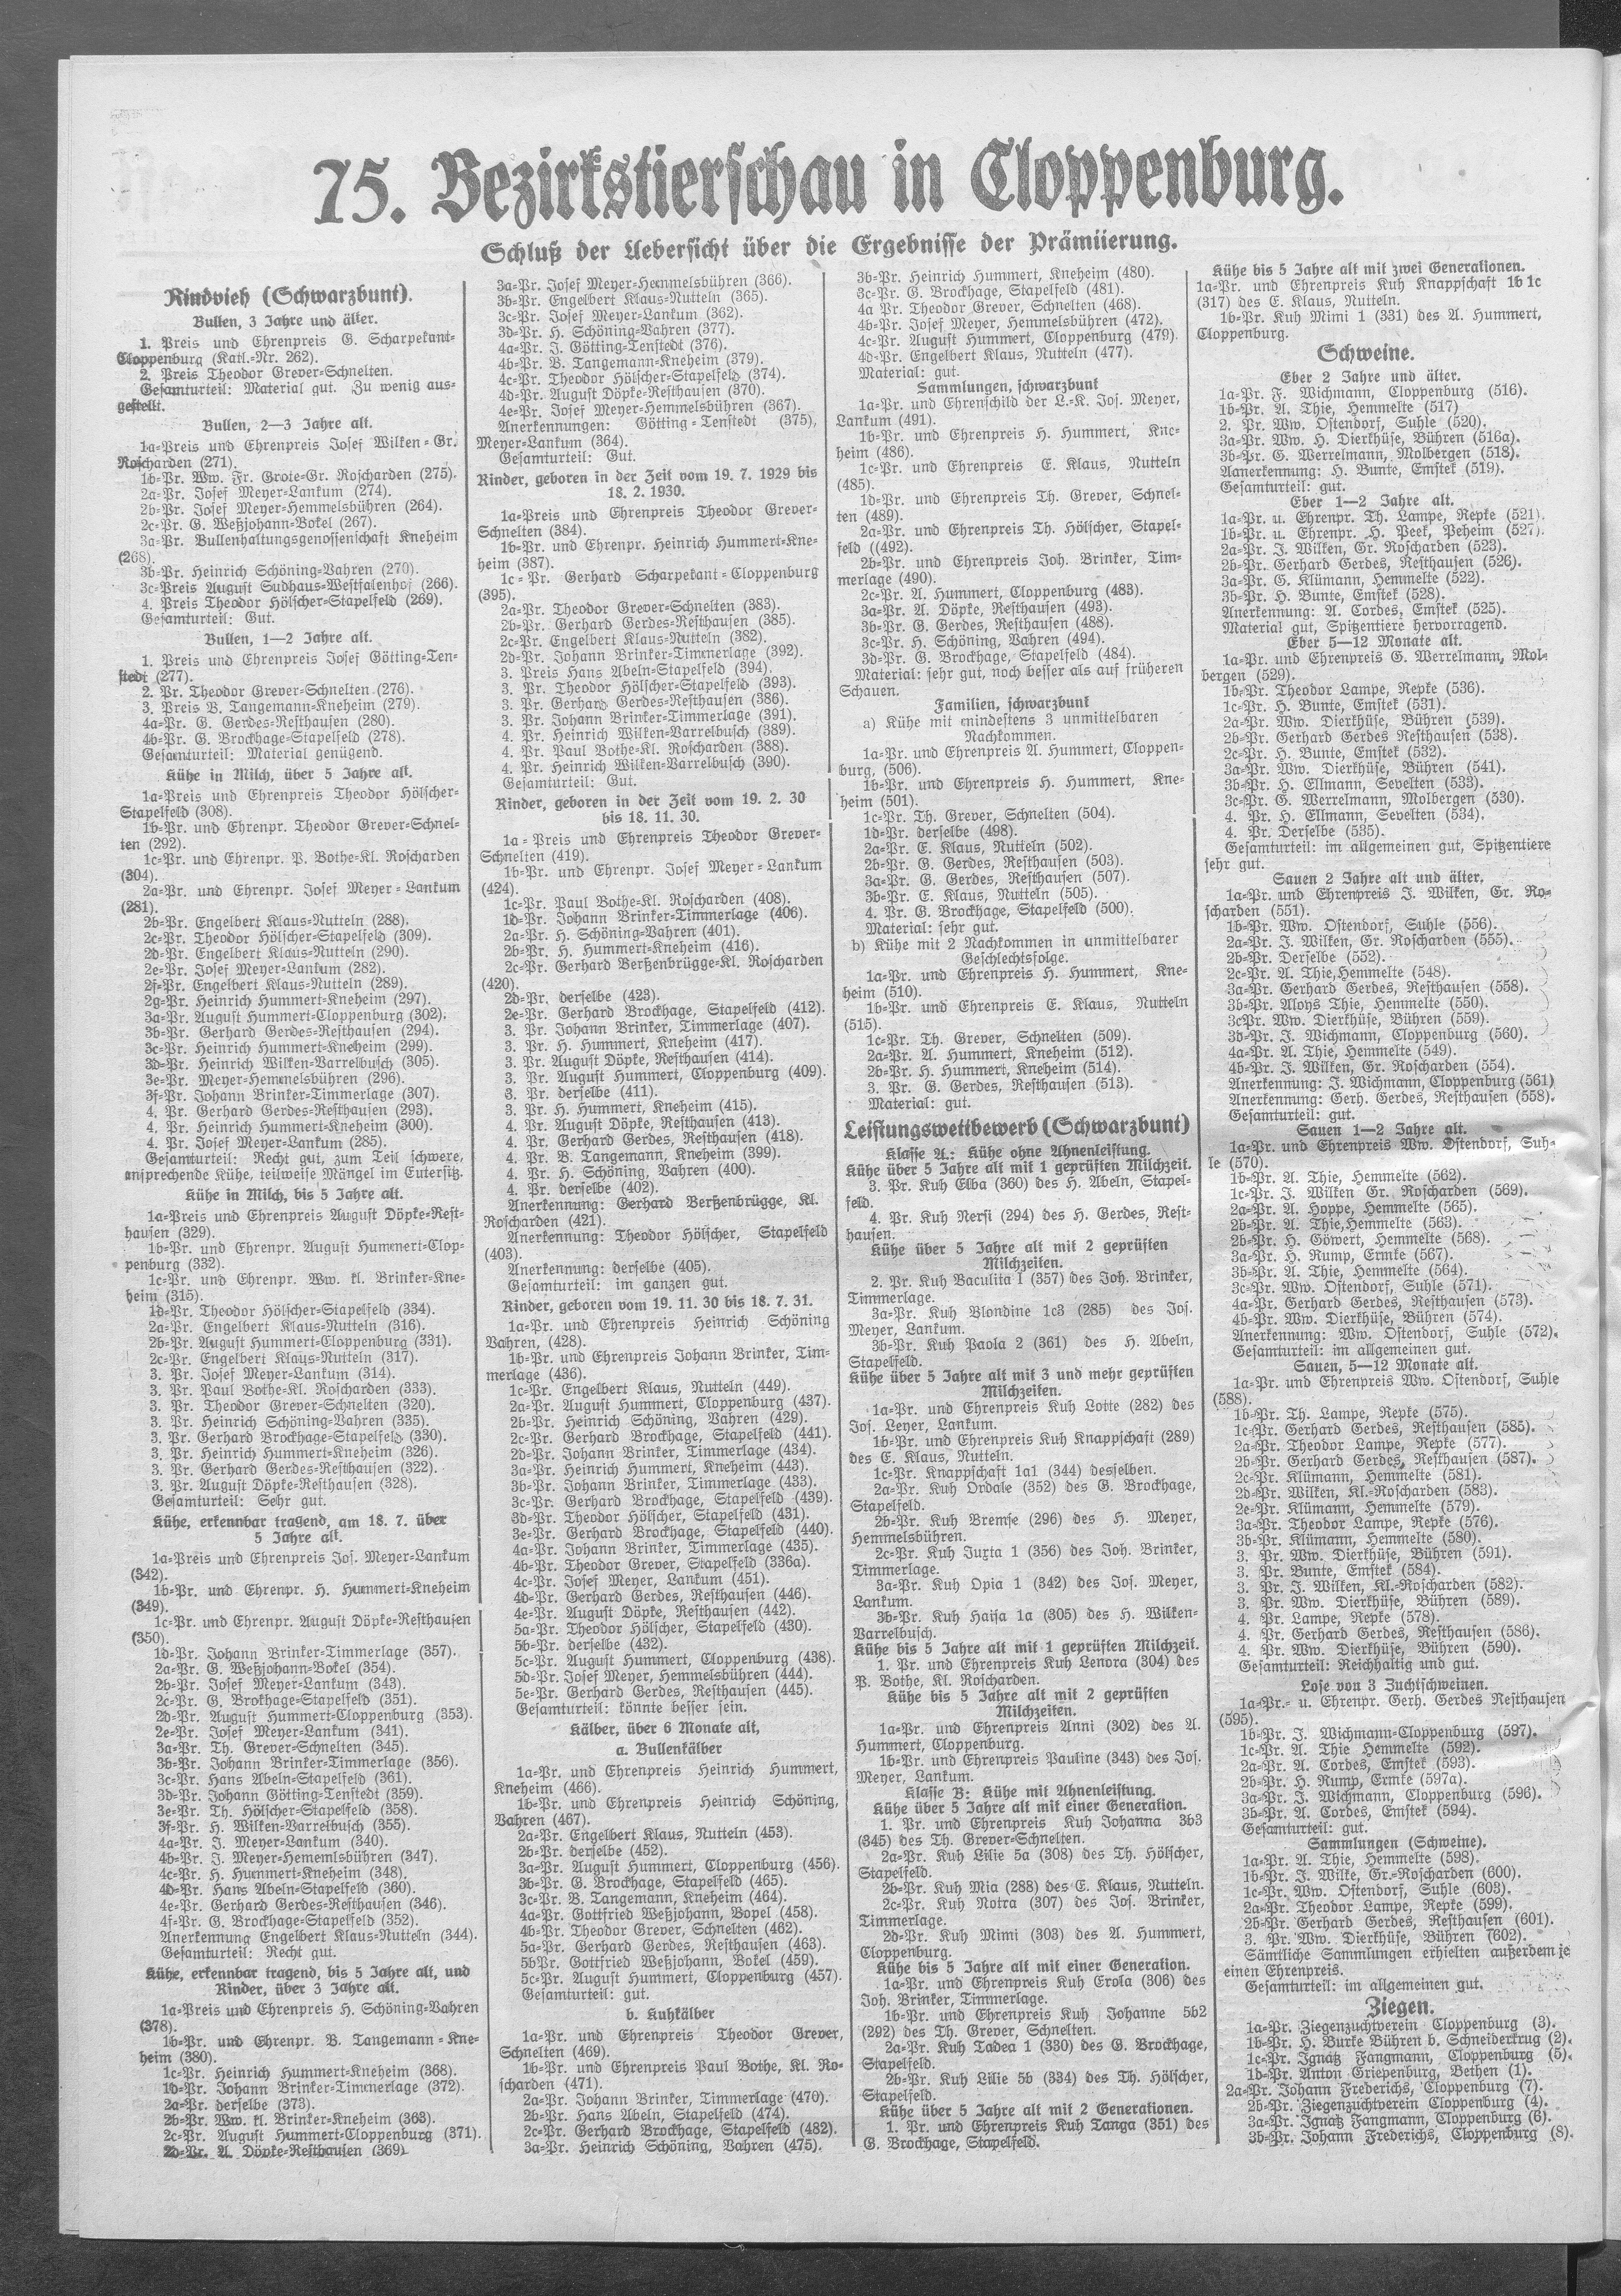 75. Bezirkstierschau in Cloppenburg.
Schluß der Uebersicht über die Ergebnisse der Prämiierung.
Rindvieh (Schwarzbunt).
Bullen, 3 Jahre und älter.
1. Preis und Ehrenpreis G. Scharpekant-
Cloppenburg (Katl.-Nr. 262).
2. Preis Theodor Grever-Schnelten.
Gesamturteil: Material gut. Zu wenig aus-
gestellt.
Bullen, 2—3 Jahre alt.
1a-Preis und Ehrenpreis Josef Wilken-Gr.
Roscharden (271).
1b-Pr. Ww. Fr. Grote-Gr. Roscharden (275).
2a-Pr. Josef Meyer-Lankum (274).
2b-Pr. Josef Meyer-Hemmelsbühren (264).
2c-Pr. G. Weßjohann-Bokel (267).
3a-Pr. Bullenhaltungsgenossenschaft Kneheim
(268).
3b-Pr. Heinrich Schöning-Vahren (270).
3c-Preis August Sudhaus-Westfalenhof (266).
4. Preis Theodor Hölscher-Stapelfeld (269).
Gesamturteil: Gut.
Bullen, 1—2 Jahre alt.
1. Preis und Ehrenpreis Josef Götting-Ten-
stedt (277).
2. Pr. Theodor Grever-Schnelten (276).
3. Preis B. Tangemann-Kneheim (279).
4a-Pr. G. Gerdes-Resthausen (280).
4b-Pr. G. Brockhage-Stapelfeld (278).
Gesamturteil: Material genügend.
Kühe in Milch, über 5 Jahre alt.
1a-Preis und Ehrenpreis Theodor Hölscher-
Stapelfeld (308).
1b-Pr. und Ehrenpr. Theodor Grever-Schnel-
ten (292).
1c-Pr. und Ehrenpr. P. Bothe-Kl. Roscharden
(304).
2a-Pr. und Ehrenpr. Josef Meyer-Lankum
(281).
2b-Pr. Engelbert Klaus-Nutteln (288).
2c-Pr. Theodor Hölscher-Stapelfeld (309).
2d-Pr. Engelbert Klaus-Nutteln (290).
2e-Pr. Josef Meyer-Lankum (282).
2f-Pr. Engelbert Klaus-Nutteln (289).
2g-Pr. Heinrich Hummert-Kneheim (297).
3a-Pr. August Hummert-Cloppenburg (302).
3b-Pr. Gerhard Gerdes-Resthausen (294).
3c-Pr. Heinrich Hummert-Kneheim (299).
3d-Pr. Heinrich Wilken-Varrelbusch (305).
3e-Pr. Meyer-Hemmelsbühren (296).
3f-Pr. Johann Brinker-Timmerlage (307).
4. Pr. Gerhard Gerdes-Resthausen (293).
4. Pr. Heinrich Hummert-Kneheim (300).
4. Pr. Josef Meyer-Lankum (285).
Gesamturteil: Recht gut, zum Teil schwere,
ansprechende Kühe, teilweise Mängel im Eutersitz.
Kühe in Milch, bis 5 Jahre alt.
1a-Preis und Ehrenpreis August Döpke-Rest-
hausen (329).
1b-Pr. und Ehrenpr. August Hummert-Clop-
penburg (332).
1c-Pr. und Ehrenpr. Ww. kl. Brinker-Kne-
heim (315).
1d-Pr. Theodor Hölscher-Stapelfeld (334).
2a-Pr. Engelbert Klaus-Nutteln (316).
2b-Pr. August Hummert-Cloppenburg (331).
2c-Pr. Engelbert Klaus-Nutteln (317).
3. Pr. Josef Meyer-Lankum (314).
3. Pr. Paul Bothe-Kl. Roscharden (333).
3. Pr. Theodor Grever-Schnelten (320).
3. Pr. Heinrich Schöning-Vahren (335).
3. Pr. Gerhard Brockhage-Stapelfeld (330).
3. Pr. Heinrich Hummert-Kneheim (326).
3. Pr. Gerhard Gerdes-Resthausen (322).
3. Pr. August Döpke-Resthausen (328).
Gesamturteil: Sehr gut.
Kühe, erkennbar tragend, am 18. 7. über
5 Jahre alt.
1a-Preis und Ehrenpreis Jos. Meyer-Lankum
(342).
1b-Pr. und Ehrenpr. H. Hummert-Kneheim
(349).
1c-Pr. und Ehrenpr. August Döpke-Resthausen
(350).
1d-Pr. Johann Brinker-Timmerlage (357).
2a-Pr. G. Weßjohann-Bokel (354).
2b-Pr. Josef Meyer-Lankum (343).
2c-Pr. G. Brokhage-Stapelfeld (351).
2d-Pr. August Hummert-Cloppenburg (353).
2e-Pr. Josef Meyer-Lankum (341).
3a-Pr. Th. Grever-Schnelten (345).
3b-Pr. Johann Brinker-Timmerlage (356).
3c-Pr. Hans Abeln-Stapelfeld (361).
3d-Pr. Johann Götting-Tenstedt (359).
3e-Pr. Th. Hölscher-Stapelfeld (358).
3f-Pr. H. Wilken-Varrelbusch (355).
4a-Pr. J. Meyer-Lankum (340).
4b-Pr. J. Meyer-Hememlsbühren (347).
4c-Pr. H. Hummert-Kneheim (348).
4d-Pr. Hans Abeln-Stapelfeld (360).
4e-Pr. Gerhard Gerdes-Resthausen (346).
4f-Pr. G. Brockhage-Stapelfeld (352).
Anerkennung Engelbert Klaus-Nutteln (344).
Gesamturteil: Recht gut.
Kühe, erkennbar tragend, bis 5 Jahre alt, und
Rinder, über 3 Jahre alt.
1a-Preis und Ehrenpreis H. Schöning-Vahren
(378).
1b-Pr. und Ehrenpr. B. Tangemann-Kne-
heim (380).
1c-Pr. Heinrich Hummert-Kneheim (368).
1d-Pr. Johann Brinker-Timmerlage (372).
2a-Pr. derselbe (373).
2b-Pr. Ww. kl. Brinker-Kneheim (363).
2c-Pr. August Hummert-Cloppenburg (371).
2d-Pr. A. Döpke-Resthausen (369).
3a-Pr. Josef Meyer-Hemmelsbühren (366).
3b-Pr. Engelbert Klaus-Nutteln (365).
3c-Pr. Josef Meyer-Lankum (362).
3d-Pr. H. Schöning-Vahren (377).
4a-Pr. J. Götting-Tenstedt (376).
4b-Pr. B. Tangemann-Kneheim (379).
4c-Pr. Theodor Hölscher-Stapelfeld (374).
4d-Pr. August Döpke-Resthausen (370).
4e-Pr. Josef Meyer-Hemmelsbühren (367).
Anerkennungen: Götting-Tenstedt (375),
Meyer-Lankum (364).
Gesamturteil: Gut.
Rinder, geboren in der Zeit vom 19. 7. 1929 bis
18. 2. 1930.
1a-Preis und Ehrenpreis Theodor Grever-
Schnelten (384).
1b-Pr. und Ehrenpr. Heinrich Hummert-Kne-
heim (387).
1c-Pr. Gerhard Scharpekant-Cloppenburg
(395).
2a-Pr. Theodor Grever-Schnelten (383).
2b-Pr. Gerhard Gerdes-Resthausen (385).
2c-Pr. Engelbert Klaus-Nutteln (382).
2d-Pr. Johann Brinker-Timmerlage (392).
3. Preis Hans Abeln-Stapelfeld (394).
3. Pr. Theodor Hölscher-Stapelfeld (393).
3. Pr. Gerhard Gerdes-Resthausen (386).
3. Pr. Johann Brinker-Timmerlage (391).
4. Pr. Heinrich Wilken-Varrelbusch (389).
4. Pr. Paul Bothe-Kl. Roscharden (388).
4. Pr. Heinrich Wilken-Varrelbusch (390).
Gesamturteil: Gut.
Rinder, geboren in der Zeit vom 19. 2. 30
bis 18. 11. 30.
1a-Preis und Ehrenpreis Theodor Grever-
Schnelten (419).
1b-Pr. und Ehrenpr. Josef Meyer-Lankum
(424).
1c-Pr. Paul Bothe-Kl. Roscharden (408).
1d-Pr. Johann Brinker-Timmerlage (406).
2a-Pr. H. Schöning-Vahren (401).
2b-Pr. H. Hummert-Kneheim (416).
2c-Pr. Gerhard Berßenbrügge-Kl. Roscharden
(420).
2d-Pr. derselbe (423).
2e-Pr. Gerhard Brockhage, Stapelfeld (412).
3. Pr. Johann Brinker, Timmerlage (407).
3. Pr. H. Hummert, Kneheim (417).
3. Pr. August Döpke, Resthausen (414).
3. Pr. August Hummert, Cloppenburg (409).
3. Pr. derselbe (411).
3. Pr. H. Hummert, Kneheim (415).
4. Pr. August Döpke, Resthausen (413).
4. Pr. Gerhard Gerdes, Resthausen (418).
4. Pr. B. Tangemann, Kneheim (399).
4. Pr. H. Schöning, Vahren (400).
4. Pr. derselbe (402).
Anerkennung: Gerhard Berßenbrügge, Kl.
Roscharden (421).
Anerkennung: Theodor Hölscher, Stapelfeld
(403).
Anerkennung: derselbe (405).
Gesamturteil: im ganzen gut.
Rinder, geboren vom 19. 11. 30 bis 18. 7. 31.
1a-Pr. und Ehrenpreis Heinrich Schöning
Vahren, (428).
1b-Pr. und Ehrenpreis Johann Brinker, Tim-
merlage (436).
1c-Pr. Engelbert Klaus, Nutteln (449).
2a-Pr. August Hummert, Cloppenburg (437).
2b-Pr. Heinrich Schöning, Vahren (429).
2c-Pr. Gerhard Brockhage, Stapelfeld (441).
2d-Pr. Johann Brinker, Timmerlage (434).
3a-Pr. Heinrich Hummert, Kneheim (443).
3b-Pr. Johann Brinker, Timmerlage (433).
3c-Pr. Gerhard Brockhage, Stapelfeld (439).
3d-Pr. Theodor Hölscher, Stapelfeld (431).
3e-Pr. Gerhard Brockhage, Stapelfeld (440).
4a-Pr. Johann Brinker, Timmerlage (435).
4b-Pr. Theodor Grever, Stapelfeld (336a).
4c-Pr. Josef Meyer, Lankum (451).
4d-Pr. Gerhard Gerdes, Resthausen (446).
4e-Pr. August Döpke, Resthausen (442).
5a-Pr. Theodor Hölscher, Stapelfeld (430).
5b-Pr. derselbe (432).
5c-Pr. August Hummert, Cloppenburg (438).
5d-Pr. Josef Meyer, Hemmelsbühren (444).
5e-Pr. Gerhard Gerdes, Resthausen (445).
Gesamturteil: könnte besser sein.
Kälber, über 6 Monate alt,
a. Bullenkälber
1a-Pr. und Ehrenpreis Heinrich Hummert,
Kneheim (466).
1b-Pr. und Ehrenpreis Heinrich Schöning,
Vahren (467).
2a-Pr. Engelbert Klaus, Nutteln (453).
2b-Pr. derselbe (452).
3a-Pr. August Hummert, Cloppenburg (456).
3b-Pr. G. Brockhage, Stapelfeld (465).
3c-Pr. B. Tangemann, Kneheim (464).
4a-Pr. Gottfried Weßjohann, Bopel (458).
4b-Pr. Theodor Grever, Schnelten (462).
5a-Pr. Gerhard Gerdes, Resthausen (463).
5bPr. Gottfried Weßjohann, Bokel (459).
5c-Pr. August Hummert, Cloppenburg (457).
Gesamturteil: gut.
b. Kuhkälber
1a-Pr. und Ehrenpreis Theodor Grever,
Schnelten (469).
1b-Pr. und Ehrenpreis Paul Bothe, Kl. Ro-
scharden (471).
2a-Pr. Johann Brinker, Timmerlage (470).
2b-Pr. Hans Abeln, Stapelfeld (474).
2c-Pr. Gerhard Brockhage, Stapelfeld (482).
3a-Pr. Heinrich Schöning, Vahren (475).
3b-Pr. Heinrich Hummert, Kneheim (480).
3c-Pr. G. Brockhage, Stapelfeld (481).
4a Pr. Theodor Grever, Schnelten (468).
4b-Pr. Josef Meyer, Hemmelsbühren (472).
4c-Pr. August Hummert, Cloppenburg (479).
4d-Pr. Engelbert Klaus, Nutteln (477).
Material: gut.
Sammlungen, schwarzbunt
1a-Pr. und Ehrenschild der L.-K. Jos. Meyer,
Lankum (491).
1b-Pr. und Ehrenpreis H. Hummert, Kne-
heim (486).
1c-Pr. und Ehrenpreis E. Klaus, Nutteln
(485).
1d-Pr. und Ehrenpreis Th. Grever, Schnel-
ten (489).
2a-Pr. und Ehrenpreis Th. Hölscher, Stapel-
feld ((492).
2b-Pr. und Ehrenpreis Joh. Brinker, Tim-
merlage (490).
2c-Pr. A. Hummert, Cloppenburg (483).
3a-Pr. A. Döpke, Resthausen (493).
3b-Pr. G. Gerdes, Resthausen (488).
3c-Pr. H. Schöning, Vahren (494).
3d-Pr. G. Brockhage, Stapelfeld (484).
Material: sehr gut, noch besser als auf früheren
Schauen.
Familien, schwarzbunt
a) Kühe mit mindestens 3 unmittelbaren
Nachkommen.
1a-Pr. und Ehrenpreis A. Hummert, Cloppen-
burg, (506).
1b-Pr. und Ehrenpreis H. Hummert, Kne-
heim (501).
1c-Pr. Th. Grever, Schnelten (504).
1d-Pr. derselbe (498).
2a-Pr. E. Klaus, Nutteln (502).
2b-Pr. G. Gerdes, Resthausen (503).
3a-Pr. G. Gerdes, Resthausen (507).
3b-Pr. E. Klaus, Nutteln (505).
4. Pr. G. Brockhage, Stapelfeld (500).
Material: sehr gut.
b) Kühe mit 2 Nachkommen in unmittelbarer
Geschlechtsfolge.
1a-Pr. und Ehrenpreis H. Hummert, Kne-
heim (510).
1b-Pr. und Ehrenpreis E. Klaus, Nutteln
(515).
1c-Pr. Th. Grever, Schnelten (509).
2a-Pr. A. Hummert, Kneheim (512).
2b-Pr. H. Hummert, Kneheim (514).
3. Pr. G. Gerdes, Resthausen (513).
Material: gut.
Leistungswettbewerb (Schwarzbunt)
Klasse A.: Kühe ohne Ahnenleistung.
Kühe über 5 Jahre alt mit 1 geprüften Milchzeit.
3. Pr. Kuh Elba (360) des H. Abeln, Stapel-
feld.
4. Pr. Kuh Nersi (294) des H. Gerdes, Rest-
hausen.
Kühe über 5 Jahre alt mit 2 geprüften
Milchzeiten.
2. Pr. Kuh Baculita I (357) des Joh. Brinker,
Timmerlage.
3a-Pr. Kuh Blondine 1c3 (285) des Jos.
Meyer, Lankum.
3b-Pr. Kuh Paola 2 (361) des H. Abeln,
Stapelfeld.
Kühe über 5 Jahre alt mit 3 und mehr geprüften
Milchzeiten.
1a-Pr. und Ehrenpreis Kuh Lotte (282) des
Jos. Leyer, Lankum.
1b-Pr. und Ehrenpreis Kuh Knappschaft (289)
des E. Klaus, Nutteln.
1c-Pr. Knappschaft 1a1 (344) desselben.
2a-Pr. Kuh Ordale (352) des G. Brockhage,
Stapelfeld.
2b-Pr. Kuh Bremse (296) des H. Meyer,
Hemmelsbühren.
2c-Pr. Kuh Juxta 1 (356) des Joh. Brinker,
Timmerlage.
3a-Pr. Kuh Opia 1 (342) des Jos. Meyer,
Lankum.
3b-Pr. Kuh Haisa 1a (305) des H. Wilken-
Varrelbusch.
Kühe bis 5 Jahre alt mit 1 geprüften Milchzeit.
1. Pr. und Ehrenpreis Kuh Lenora (304) des
P. Bothe, Kl. Roscharden.
Kühe bis 5 Jahre alt mit 2 geprüften
Milchzeiten.
1a-Pr. und Ehrenpreis Anni (302) des A.
Hummert, Cloppenburg.
1b-Pr. und Ehrenpreis Pauline (343) des Jos.
Meyer, Lankum.
Klasse B: Kühe mit Ahnenleistung.
Kühe über 5 Jahre alt mit einer Generation.
1. Pr. und Ehrenpreis Kuh Johanna 3b3
(345) des Th. Grever-Schnelten.
2a-Pr. Kuh Lilie 5a (308) des Th. Hölscher,
Stapelfeld.
2b-Pr. Kuh Mia (288) des E. Klaus, Nutteln.
2c-Pr. Kuh Notra (307) des Jos. Brinker,
Timmerlage.
2d-Pr. Kuh Mimi (303) des A. Hummert,
Cloppenburg.
Kühe bis 5 Jahre alt mit einer Generation.
1a-Pr. und Ehrenpreis Kuh Erola (306) des
Joh. Brinker, Timmerlage.
1b-Pr. und Ehrenpreis Kuh Johanne 5b2
(292) des Th. Grever, Schnelten.
2a-Pr. Kuh Tadea 1 (330) des G. Brockhage,
Stapelfeld.
2b-Pr. Kuh Lilie 5b (334) des Th. Hölscher,
Stapelfeld.
Kühe über 5 Jahre alt mit 2 Generationen.
1. Pr. und Ehrenpreis Kuh Tanga (351) des
G. Brockhage, Stapelfeld.
Kühe bis 5 Jahre alt mit zwei Generationen.
1a-Pr. und Ehrenpreis Kuh Knappschaft 1b 1c
(317) des E. Klaus, Nutteln.
1b-Pr. Kuh Mimi 1 (331) des A. Hummert,
Cloppenburg.
Schweine.
Eber 2 Jahre und älter.
1a-Pr. F. Wichmann, Cloppenburg (516).
1b-Pr. A. Thie, Hemmelte (517)
2. Pr. Ww. Ostendorf, Suhle (520).
3a-Pr. Ww. H. Dierkhüse, Bühren (516a).
3b-Pr. G. Werrelmann, Molbergen (518).
Aanerkennung: H. Bunte, Emstek (519).
Gesamturteil: gut.
Eber 1—2 Jahre alt.
1a-Pr. u. Ehrenpr. Th. Lampe, Repke (521).
1b-Pr. u. Ehrenpr. H. Peek, Peheim (527).
2a-Pr. J. Wilken, Gr. Roscharden (523).
2b-Pr. Gerhard Gerdes, Resthausen (526).
3a-Pr. G. Klümann, Hemmelte (522).
3b-Pr. H. Bunte, Emstek (528).
Anerkennung: A. Cordes, Emstek (525).
Material gut, Spitzentiere hervorragend.
Eber 5—12 Monate alt.
1a-Pr. und Ehrenpreis G. Werrelmann, Mol-
bergen (529).
1b-Pr. Theodor Lampe, Repke (536).
1c-Pr. H. Bunte, Emstek (531).
2a-Pr. Ww. Dierkhüse, Bühren (539).
2b-Pr. Gerhard Gerdes Resthausen (538).
2c-Pr. H. Bunte, Emstek (532).
3a-Pr. Ww. Dierkhüse, Bühren (541).
3b-Pr. H. Ellmann, Sevelten (533).
3c-Pr. G. Werrelmann, Molbergen (530).
4. Pr. H. Ellmann, Sevelten (534).
4. Pr. Derselbe (535).
Gesamturteil: im allgemeinen gut, Spitzentiere
sehr gut.
Sauen 2 Jahre alt und älter.
1a-Pr. und Ehrenpreis J. Wilken, Gr. Ro-
scharden (551).
1b-Pr. Ww. Ostendorf, Suhle (556).
2a-Pr. J. Wilken, Gr. Roscharden (555).
2b-Pr. Derselbe (552).
2c-Pr. A. Thie,Hemmelte (548).
3a-Pr. Gerhard Gerdes, Resthausen (558).
3b-Pr. Aloys Thie, Hemmelte (550).
3cPr. Ww. Dierkhüse, Bühren (559).
3d-Pr. J. Wichmann, Cloppenburg (560).
4a-Pr. A. Thie, Hemmelte (549).
4b-Pr. J. Wilken, Gr. Roscharden (554).
Anerkennung: J. Wichmann, Cloppenburg (561)
Anerkennung: Gerh. Gerdes, Resthausen (558).
Gesamturteil: gut.
Sauen 1—2 Jahre alt.
1a-Pr. und Ehrenpreis Ww. Ostendorf, Suh-
le (570).
1b-Pr. A. Thie, Hemmelte (562).
1c-Pr. J. Wilken Gr. Roscharden (569).
2a-Pr. A. Hoppe, Hemmelte (565).
2b-Pr. A. Thie,Hemmelte (563).
2b-Pr. H. Göwert, Hemmelte (568).
3a-Pr. H. Rump, Ermke (567).
3b-Pr. A. Thie, Hemmelte (564).
3c-Pr. Ww. Ostendorf, Suhle (571).
4a-Pr. Gerhard Gerdes, Resthausen (573).
4b-Pr. Ww. Dierkhüse, Bühren (574).
Anerkennung: Ww. Ostendorf, Suhle (572).
Gesamturteil: im allgemeinen gut.
Sauen, 5—12 Monate alt.
1a-Pr. und Ehrenpreis Ww. Ostendorf, Suhle
(588).
1b-Pr. Th. Lampe, Repke (575).
1c-Pr. Gerhard Gerdes, Resthausen (585).
2a-Pr. Theodor Lampe, Repke (577).
2b-Pr. Gerhard Gerdes, Resthausen (587).
2c-Pr. Klümann, Hemmelte (581).
2d-Pr. Wilken, Kl.-Roscharden (583).
2e-Pr. Klümann, Hemmelte (579).
3a-Pr. Theodor Lampe, Repke (576).
3b-Pr. Klümann, Hemmelte (580).
3. Pr. Ww. Dierkhüse, Bühren (591).
3. Pr. Bunte, Emstek (584).
3. Pr. J. Wilken, Kl.-Roscharden (582).
3. Pr. Ww. Dierkhüse, Bühren (589).
4. Pr. Lampe, Repke (578).
4. Pr. Gerhard Gerdes, Resthausen (586).
4. Pr. Ww. Dierkhüse, Bühren (590).
Gesamturteil: Reichhaltig und gut.
Lose von 3 Zuchtschweinen.
1a-Pr.- u. Ehrenpr. Gerh. Gerdes Resthausen
(595).
1b-Pr. J. Wichmann-Cloppenburg (597).
1c-Pr. A. Thie Hemmelte (592).
2a-Pr. A. Cordes, Emstek (593).
2b-Pr. H. Rump, Ermke (597a).
3a-Pr. J. Wichmann, Cloppenburg (596).
3b-Pr. A. Cordes, Emstek (594).
Gesamturteil: gut.
Sammlungen (Schweine).
1a-Pr. A. Thie, Hemmelte (598).
1b-Pr. J. Wilke, Gr.-Roscharden (600).
1c-Pr. Ww. Ostendorf, Suhle (603).
2a-Pr. Theodor Lampe, Repke (599).
2b-Pr. Gerhard Gerdes, Resthausen (601).
3. Pr. Ww. Dierkhüse, Bühren (602).
Sämtliche Sammlungen erhielten außerdem je
einen Ehrenpreis.
Gesamturteil: im allgemeinen gut.
Ziegen.
1a-Pr. Ziegenzuchtverein Cloppenburg (3).
1b-Pr. H. Burke Bühren b. Schneiderkrug (2).
1c-Pr. Ignatz Fangmann, Cloppenburg (5).
1d-Pr. Anton Griepenburg, Bethen (1).
2a-Pr. Johann Frederichs, Cloppenburg (7).
2b-Pr. Ziegenzuchtverein Cloppenburg (4).
3a-Pr. Ignatz Fangmann, Cloppenburg (6).
3b-Pr. Johann Frederichs, Cloppenburg (8).